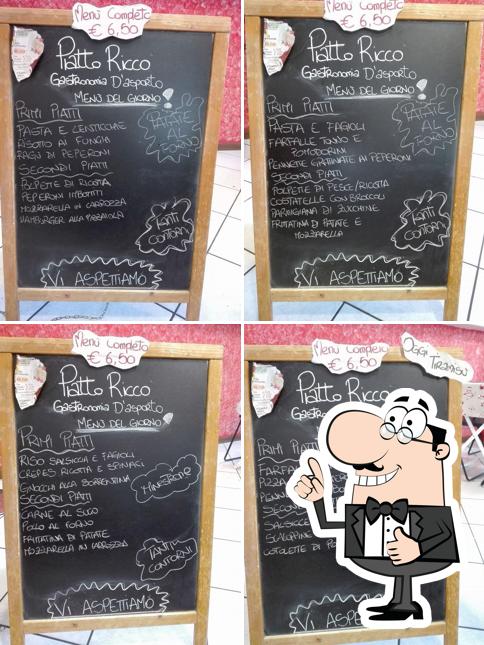 Menù Completo
€ 6,50
Piatto Ricco
Gastronomia D'asporto
MENÙ DEL GIORNO!
PRIMI PIATTI
PASTA E LENTICCHIE
RISOTTO AI FUNGHI
RAGÙ DI PEPERONI
SECONDI PIATTI
POLPETTE DI RICOTTA
PEPERONI IMBOTTITI
MOZZARELLA IN CARROZZA
HAMBURGER ALLA PIZZAIOLA
PATATE
AL
FORNO
TANTI
CONTORNI
VI ASPETTIAMO
Menù Completo
€ 6,50
Piatto Ricco
Gastronomia D'asporto
MENÙ DEL GIORNO!
PRIMI PIATTI
PASTA E FAGIOLI
FARFALLE TONNO E
POMODORINI
PENNETTE GRATINATE AI PEPERONI
SECONDI PIATTI
POLPETTE DI PESCE/RICOTTA
COSTATELLE CON BROCCOLI
PARMIGIANA DI ZUCCHINE
FRITTATINA DI PATATE E
MOZZARELLA
PATATE
AL
FORNO
TANTI
CONTORNI
VI ASPETTIAMO
Menù Completo
€ 6,50
Piatto Ricco
Gastronomia D'asporto
MENÙ DEL GIORNO!
PRIMI PIATTI
RISO SALSICCIA E FAGIOLI
CREPES RICOTTA E SPINACI
GNOCCHI ALLA SORRENTINA
SECONDI PIATTI
CARNE AL SUGO
POLLO AL FORNO
FRITTATINA DI PATATE
MOZZARELLA IN CARROZZA
MINESTRONE
TANTI
CONTORNI
VI ASPETTIAMO
Menù Completo
€ 6,50
OGGI
TIRAMISÙ
Piatto Ricco
PRIMI
SALSICCE
COTOLETTE DI
VI